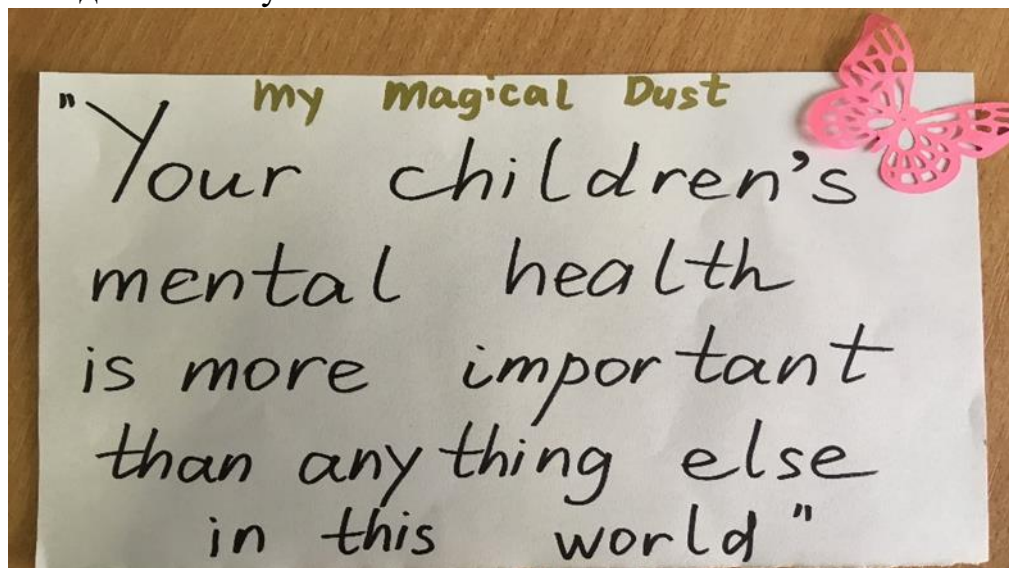 My Magical Dust
"Your children's
mental health
is more important
than anything else
in this world"